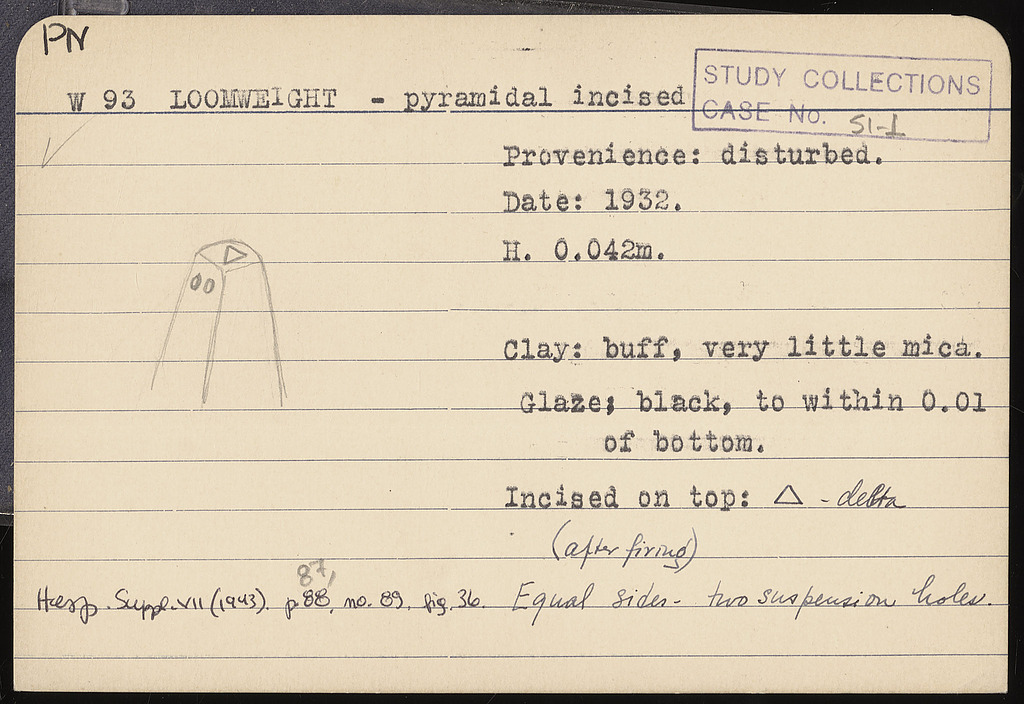 PN
W 93 LOOMWEIGHT - pyramidal incised
STUDY COLLECTIONS
CASE No. S1-1
Provenience: disturbed.
Date: 1932.
H. 0.042m.
Clay: buff, very little mica.
Glaze; black, to within 0.01
of bottom.
Incised on top: △ - delta
(after firing)
87,
Hesp. Suppl. VII (1943). p 88, no. 89. fig. 36. Equal sides - two suspension holes.